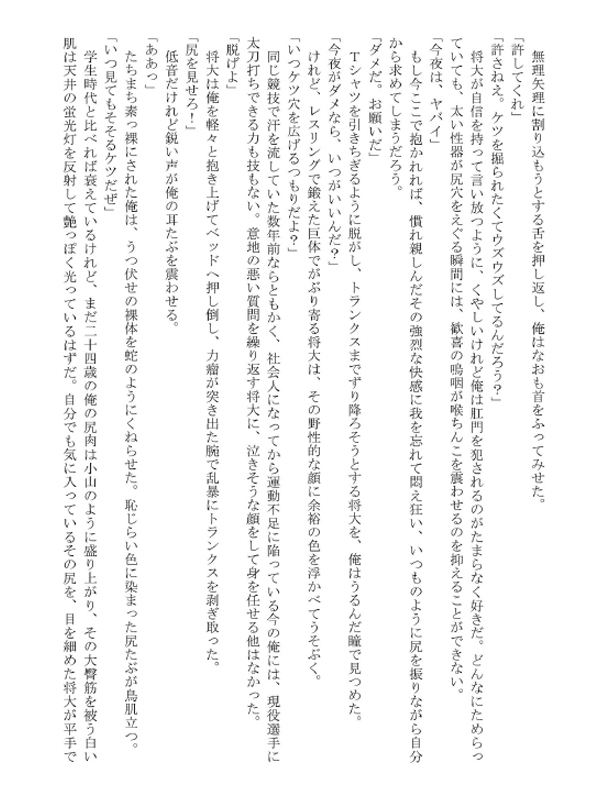 無理矢理に割り込もうとする舌を押し返し、俺はなおも首をふってみせた。
「許してくれ」
「許さねえ。ケツを掘られたくてウズウズしてるんだろう？」
　将大が自信を持って言い放つように、くやしいけれど俺は肛門を犯されるのがたまらなく好きだ。どんなにためらっ
ていても、太い性器が尻穴をえぐる瞬間には、歓喜の嗚咽が喉ちんこを震わせるのを抑えることができない。
「今夜は、ヤバイ」
　もし今ここで抱かれれば、慣れ親しんだその強烈な快感に我を忘れて悶え狂い、いつものように尻を振りながら自分
から求めてしまうだろう。
「ダメだ。お願いだ」
　Ｔシャツを引きちぎるように脱がし、トランクスまでずり降ろそうとする将大を、俺はうるんだ瞳で見つめた。
「今夜がダメなら、いつがいいんだ？」
　けれど、レスリングで鍛えた巨体でがぶり寄る将大は、その野性的な顔に余裕の色を浮かべてうそぶく。
「いつケツ穴を広げるつもりだよ？」
　同じ競技で汗を流していた数年前ならともかく、社会人になってから運動不足に陥っている今の俺には、現役選手に
太刀打ちできる力も技もない。意地の悪い質問を繰り返す将大に、泣きそうな顔をして身を任せる他はなかった。
「脱げよ」
　将大は俺を軽々と抱き上げてベッドへ押し倒し、力瘤が突き出た腕で乱暴にトランクスを剥ぎ取った。
「尻を見せろ！」
　低音だけれど鋭い声が俺の耳たぶを震わせる。
「ああっ」
　たちまち素っ裸にされた俺は、うつ伏せの裸体を蛇のようにくねらせた。恥じらい色に染まった尻たぶが鳥肌立つ。
「いつ見てもそそるケツだぜ」
　学生時代と比べれば衰えているけれど、まだ二十四歳の俺の尻肉は小山のように盛り上がり、その大臀筋を被う白い
肌は天井の蛍光灯を反射して艶っぽく光っているはずだ。自分でも気に入っているその尻を、目を細めた将大が平手で